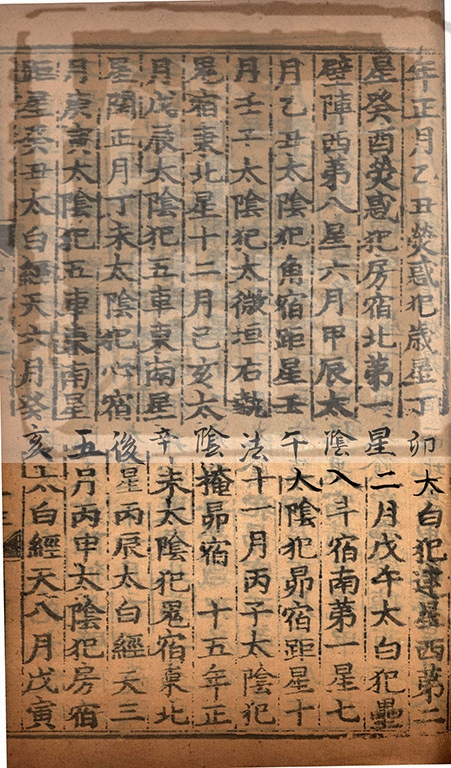 年正月乙丑熒惑犯歲星丁卯太白犯建星西第二
星癸酉熒惑犯房宿北第一星二月戊午太白犯壘
壁陣西第八星六月甲辰太陰入斗宿南第一星七
月乙丑太陰犯角宿距星壬午太陰犯昴宿距星十
月壬子太陰犯太微垣右執法十一月丙子太陰犯
鬼宿東北星十二月己亥太陰掩昴宿 十五年正
月戊辰太陰犯五車東南星辛未太陰犯鬼宿東北
星閏正月丁未太陰犯心宿後星丙辰太白經天三
月庚寅太陰犯五車東南星五月丙申太陰犯房宿
距星癸丑太白經天六月癸亥太白經天八月戊寅